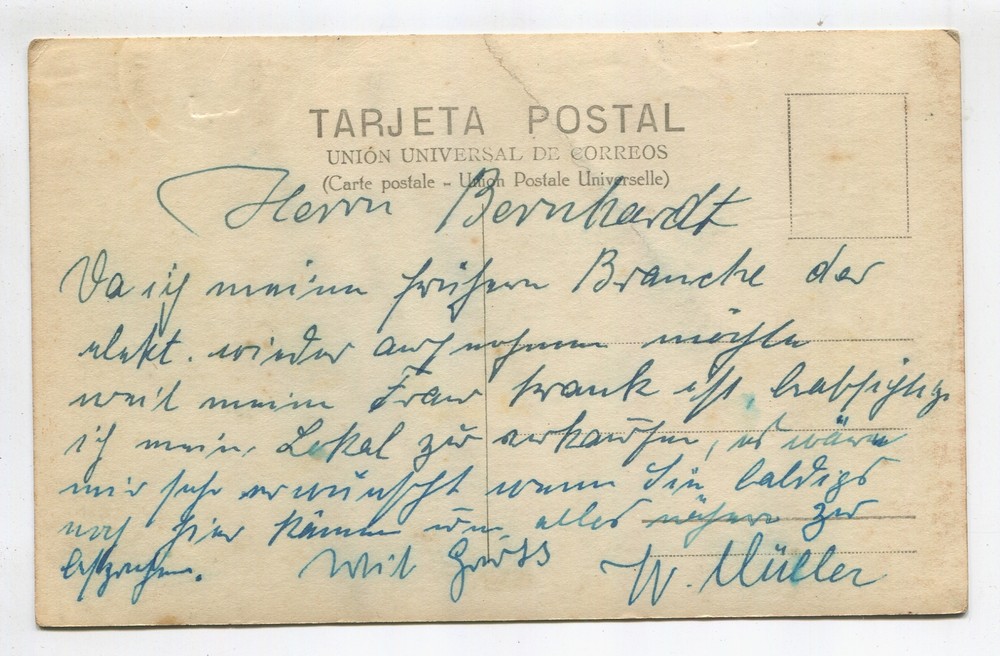 TARJETA POSTAL
UNIÓN UNIVERSAL DE CORREOS
(Carte postale - Union Postale Universelle)
Herrn Bernhardt
Da ich meine frühern Branche der
elekt. wieder aufnehmen möchte
weil meine Frau krank ist, beabsichtige
ich mein Lokal zu verkaufen, es wäre
mir sehr erwünscht wenn Sie baldigs
noch hier kämen um alles nähere zu
besprechen. Mit Gruss W. Müller